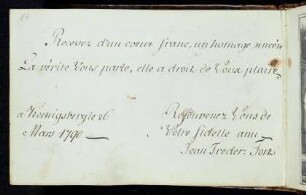 Recevez d'un coeur franc, un homage sincère
La vérité Vous parle, elle a droit de Vous plaire.
à Koenigsberg le
Mars 1790
Ressouvenez Vous de
Votre fidelle ami
Jean Freder: